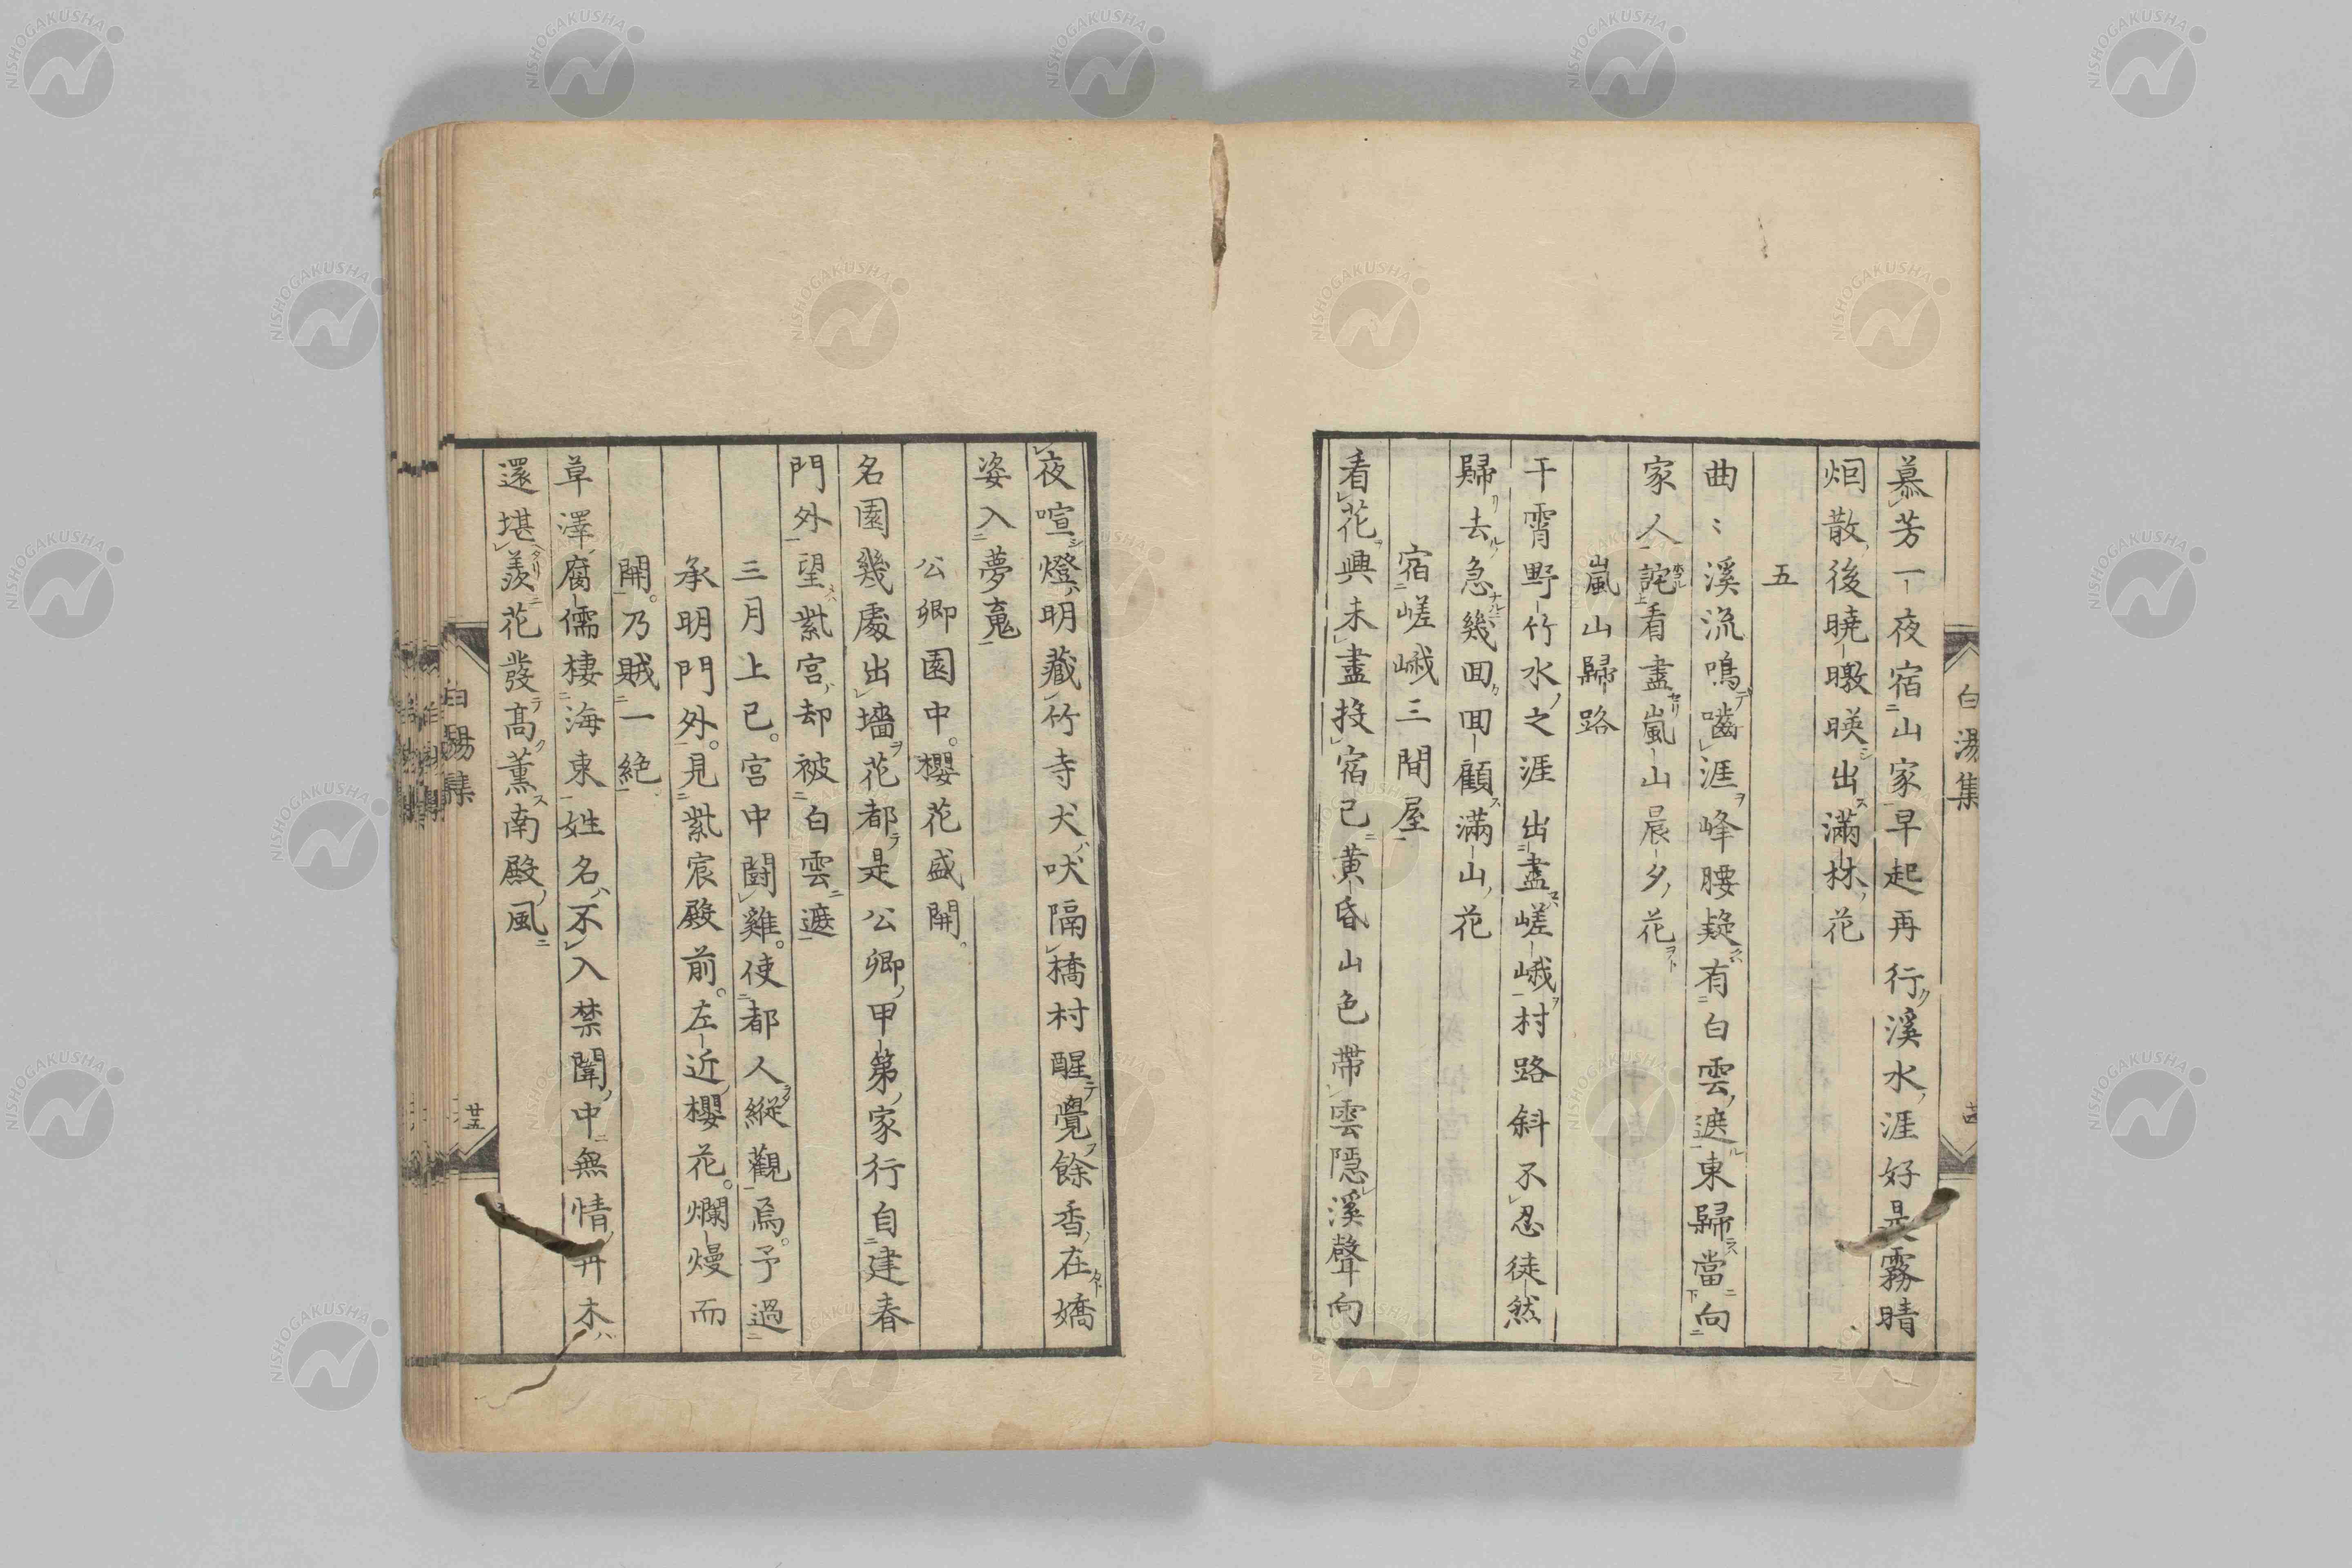 慕芳一夜宿山家早起再行溪水涯好是霧晴
烟散後曉暾暎出滿林花
五
曲〻溪流鳴嚙涯峰腰疑有白雲遮東歸當向
家人詫看盡嵐山晨夕花
嵐山歸路
干霄野竹水之涯出盡嵯峨村路斜不忍徒然
歸去急幾回回顧滿山花
宿嵯峨三間屋
看花興未盡投宿已黃昏山色帶雲隱溪聲向
夜喧燈明藏竹寺犬吠隔橋村醒覺餘香在嬌
姿入夢䰟
公卿園中。櫻花盛開。
名園幾處出墻花都是公卿甲第家行自建春
門外望紫宮却被白雲遮
三月上巳。宮中鬪雞。使都人縱觀焉。予過
承明門外。見紫宸殿前。左近櫻花。爛熳而
開。乃賊一絶
草澤腐儒棲海東姓名不入禁闈中無情卉木
還堪羨花發高薰南殿風
白湯集
廿五